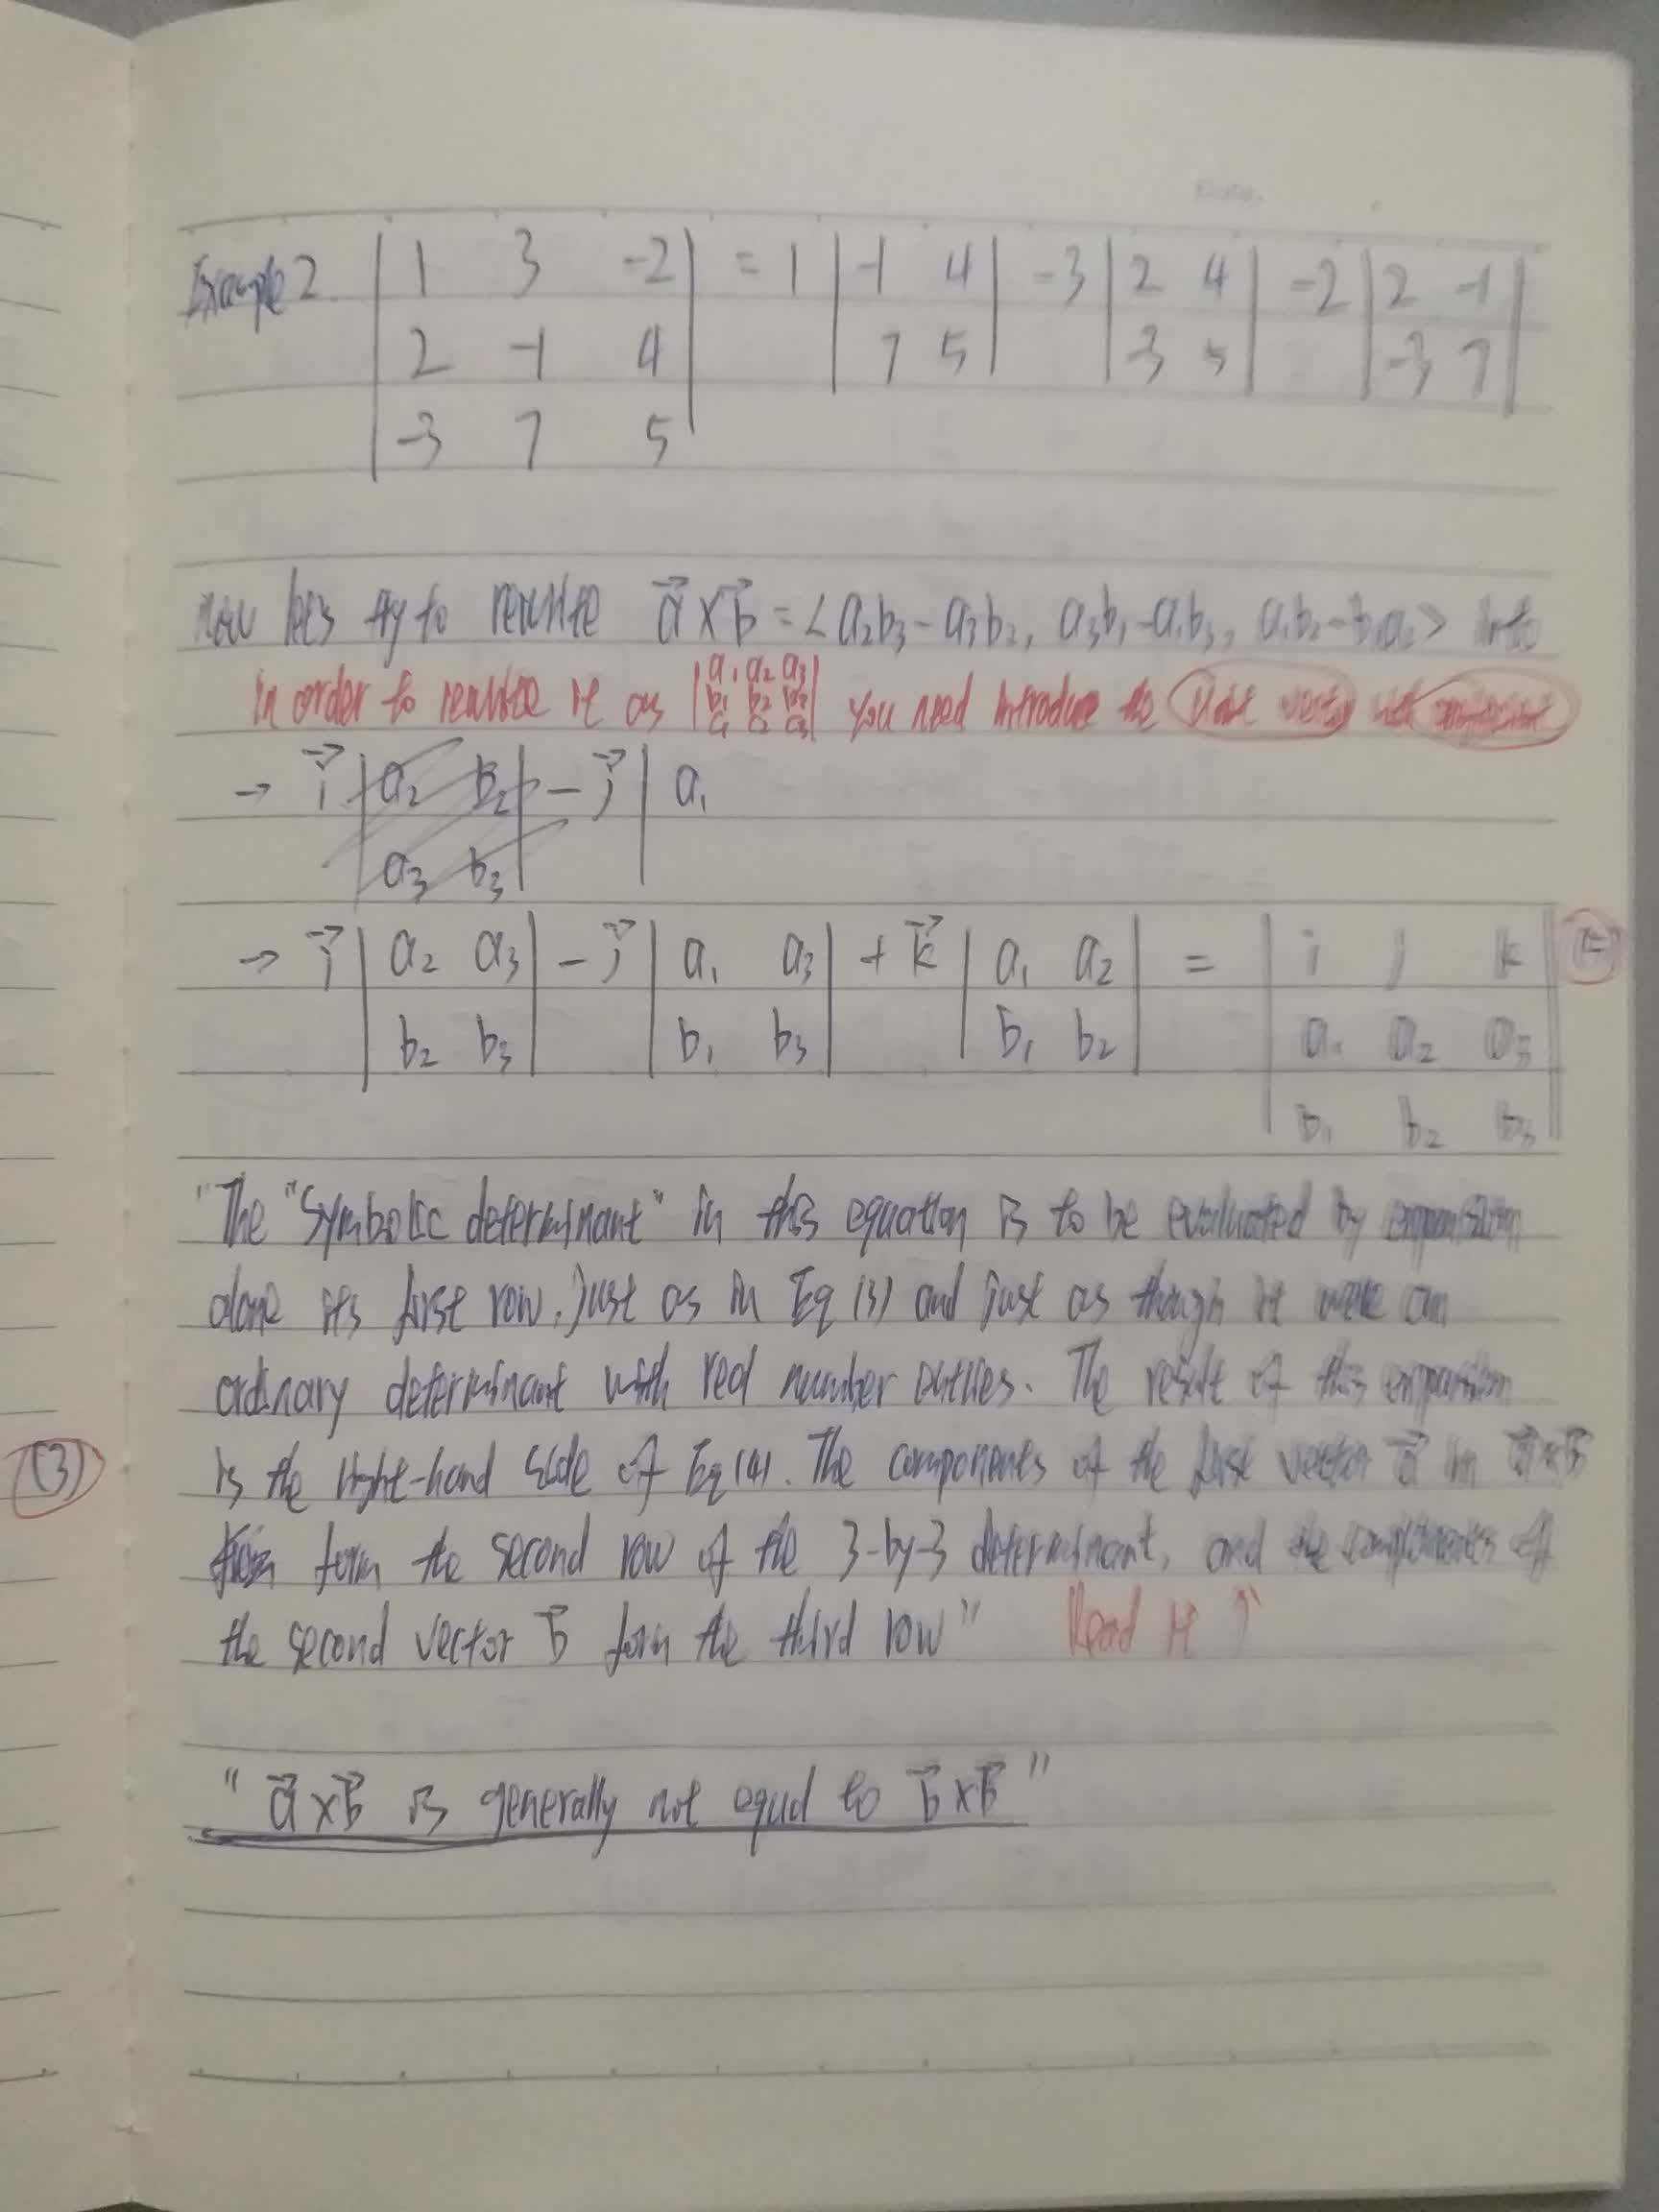 Date.
Example 2. | 1 3 -2 | = 1 | -1 4 | -3 | 2 4 | -2 | 2 -1 |
| 2 -1 4 | | 7 5 | | -3 5 | | -3 7 |
| -3 7 5 |
now let's try to rewrite a⃗ × b⃗ = < a₂b₃ - a₃b₂, a₃b₁ - a₁b₃, a₁b₂ - b₁a₂ > into
in order to rewrite it as | a₁ a₂ a₃ | you need introduce the Unit vector with
| b₁ b₂ b₃ |
| c₁ c₂ c₃ |
→ i⃗ | a₂ b₂ | - j⃗ | a₁
| a₃ b₃ |
→ i⃗ | a₂ a₃ | - j⃗ | a₁ a₃ | + k⃗ | a₁ a₂ | = | i j k |
| b₂ b₃ | | b₁ b₃ | | b₁ b₂ | | a₁ a₂ a₃ |
| b₁ b₂ b₃ |
"The "Symbolic determinant" in this equation is to be evaluated by expansion
alone its first row, just as in Eq (3) and just as though it were an
ordinary determinant with real number entries. The result of this expansion
(3)
is the right-hand side of Eq (4). The components of the first vector a⃗ in a⃗×b⃗
form the second row of the 3-by-3 determinant, and the components of
the second vector b⃗ form the third row" Read it
" a⃗ × b⃗ is generally not equal to b⃗ × b⃗ "